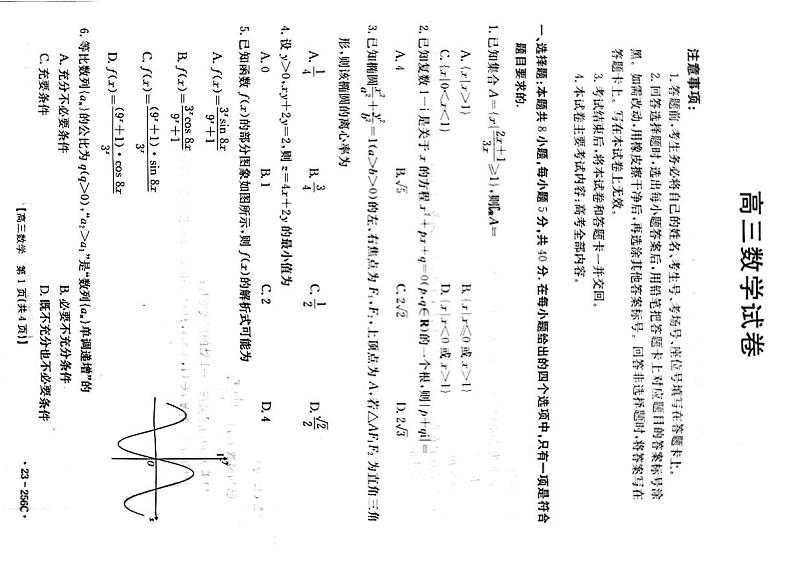 高三数学试卷
注意事项:
1. 答题前,考生务必将自己的姓名、考生号、考场号、座位号填写在答题卡上。
2. 回答选择题时,选出每小题答案后,用铅笔把答题卡上对应题目的答案标号涂
黑。如需改动,用橡皮擦干净后,再选涂其他答案标号。回答非选择题时,将答案写在
答题卡上。写在本试卷上无效。
3. 考试结束后,将本试卷和答题卡一并交回。
4. 本试卷主要考试内容:高考全部内容。
一、选择题:本题共 8 小题,每小题 5 分,共 40 分. 在每小题给出的四个选项中,只有一项是符合
题目要求的.
1. 已知集合 A={x|(2x+1)/(3x)≥1},则∁RA=
A. {x|x>1} B. {x|x≤0 或 x>1}
C. {x|0<x<1} D. {x|x<0 或 x>1}
2. 已知复数 1-i 是关于 x 的方程 x²+px+q=0(p,q∈R)的一个根,则|p+qi|=
A. 4 B. √5 C. 2√2 D. 2√3
3. 已知椭圆x²/a²+y²/b²=1(a>b>0)的左、右焦点为 F₁,F₂,上顶点为 A,若△AF₁F₂ 为直角三角
形,则该椭圆的离心率为
A. 1/4 B. 3/4 C. 1/2 D. √2/2
4. 设 y>0,xy+2y=2,则 z=4x+2y 的最小值为
A. 0 B. 1 C. 2 D. 4
5. 已知函数 f(x)的部分图象如图所示,则 f(x)的解析式可能为
A. f(x)=3ˣsin 8x/(9ˣ+1)
B. f(x)=3ˣcos 8x/(9ˣ+1)
C. f(x)=(9ˣ+1)·sin 8x/3ˣ
D. f(x)=(9ˣ+1)·cos 8x/3ˣ
O
x
6. 等比数列{aₙ}的公比为 q(q>0),“a₂>a₁”是“数列{aₙ}单调递增”的
A. 充分不必要条件 B. 必要不充分条件
C. 充要条件 D. 既不充分也不必要条件
【高三数学 第 1 页(共 4 页)】 ·23-256C·